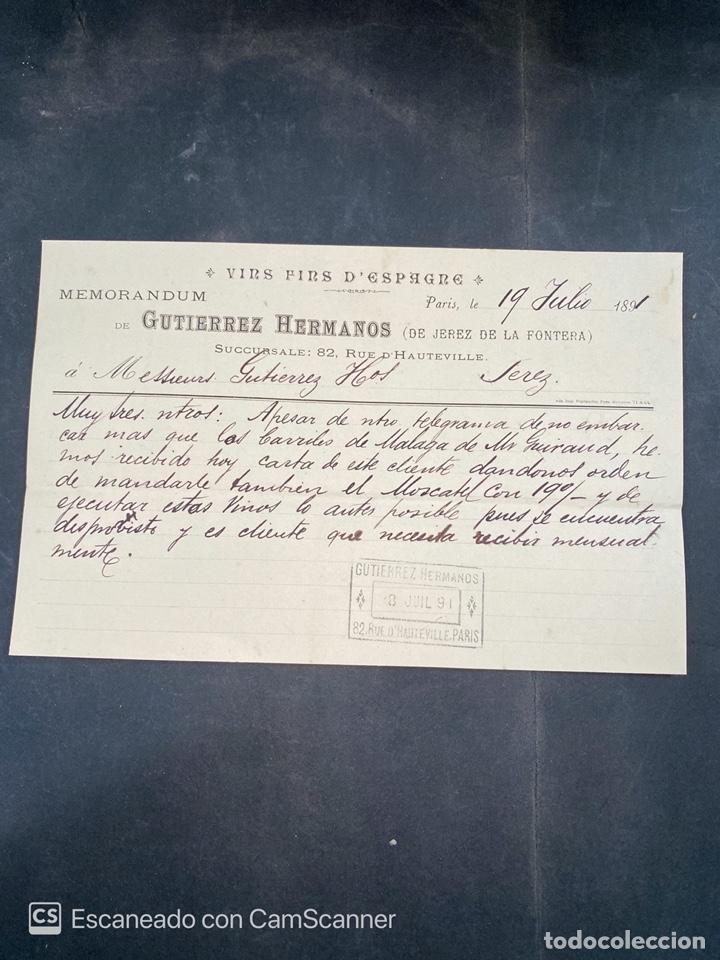 VINS FINS D'ESPAGNE
MEMORANDUM
Paris, le 19 Julio 1891
DE GUTIERREZ HERMANOS (DE JEREZ DE LA FONTERA)
SUCCURSALE: 82, RUE D'HAUTEVILLE.
á Messieurs Gutierrez Hos Jerez.
Muy sres. ntros: Apesar de ntro telegrama de no embar-
car mas que los barriles de Malaga de Mr Guiraud, he-
mos recibido hoy carta de este cliente dandonos orden
de mandarle tambien el Moscatel con 19% y de
ejecutar estos vinos lo antes posible pues se encuentra
disprovisto y es cliente que necesita recibir mensual-
mente.
GUTIERREZ HERMANOS
8 JUIL 91
82, RUE D'HAUTEVILLE, PARIS
CS Escaneado con CamScanner
todocoleccion